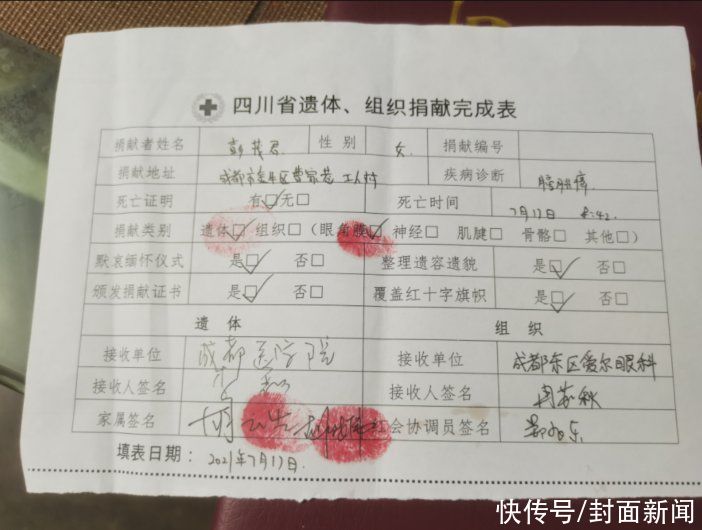 四川省遗体、组织捐献完成表
捐献者姓名 彭茂君 性别 女 捐献编号
捐献地址 成都市金牛区曹家巷工人村 疾病诊断
死亡证明 有☑无□ 死亡时间 7月17日 8:42
捐献类别 遗体☑ 组织□（眼角膜☑ 神经□ 肌腱□ 骨骼□ 其他□）
默哀缅怀仪式 是☑ 否□ 整理遗容遗貌 是☑ 否□
颁发捐献证书 是☑ 否□ 覆盖红十字旗帜 是☑ 否□
遗体 组织
接收单位 成都医学院 接收单位 成都东区爱尔眼科
接收人签名 接收人签名
家属签名 红会协调员签名
填表日期： 2021年7月17日.
快传号/封面新闻